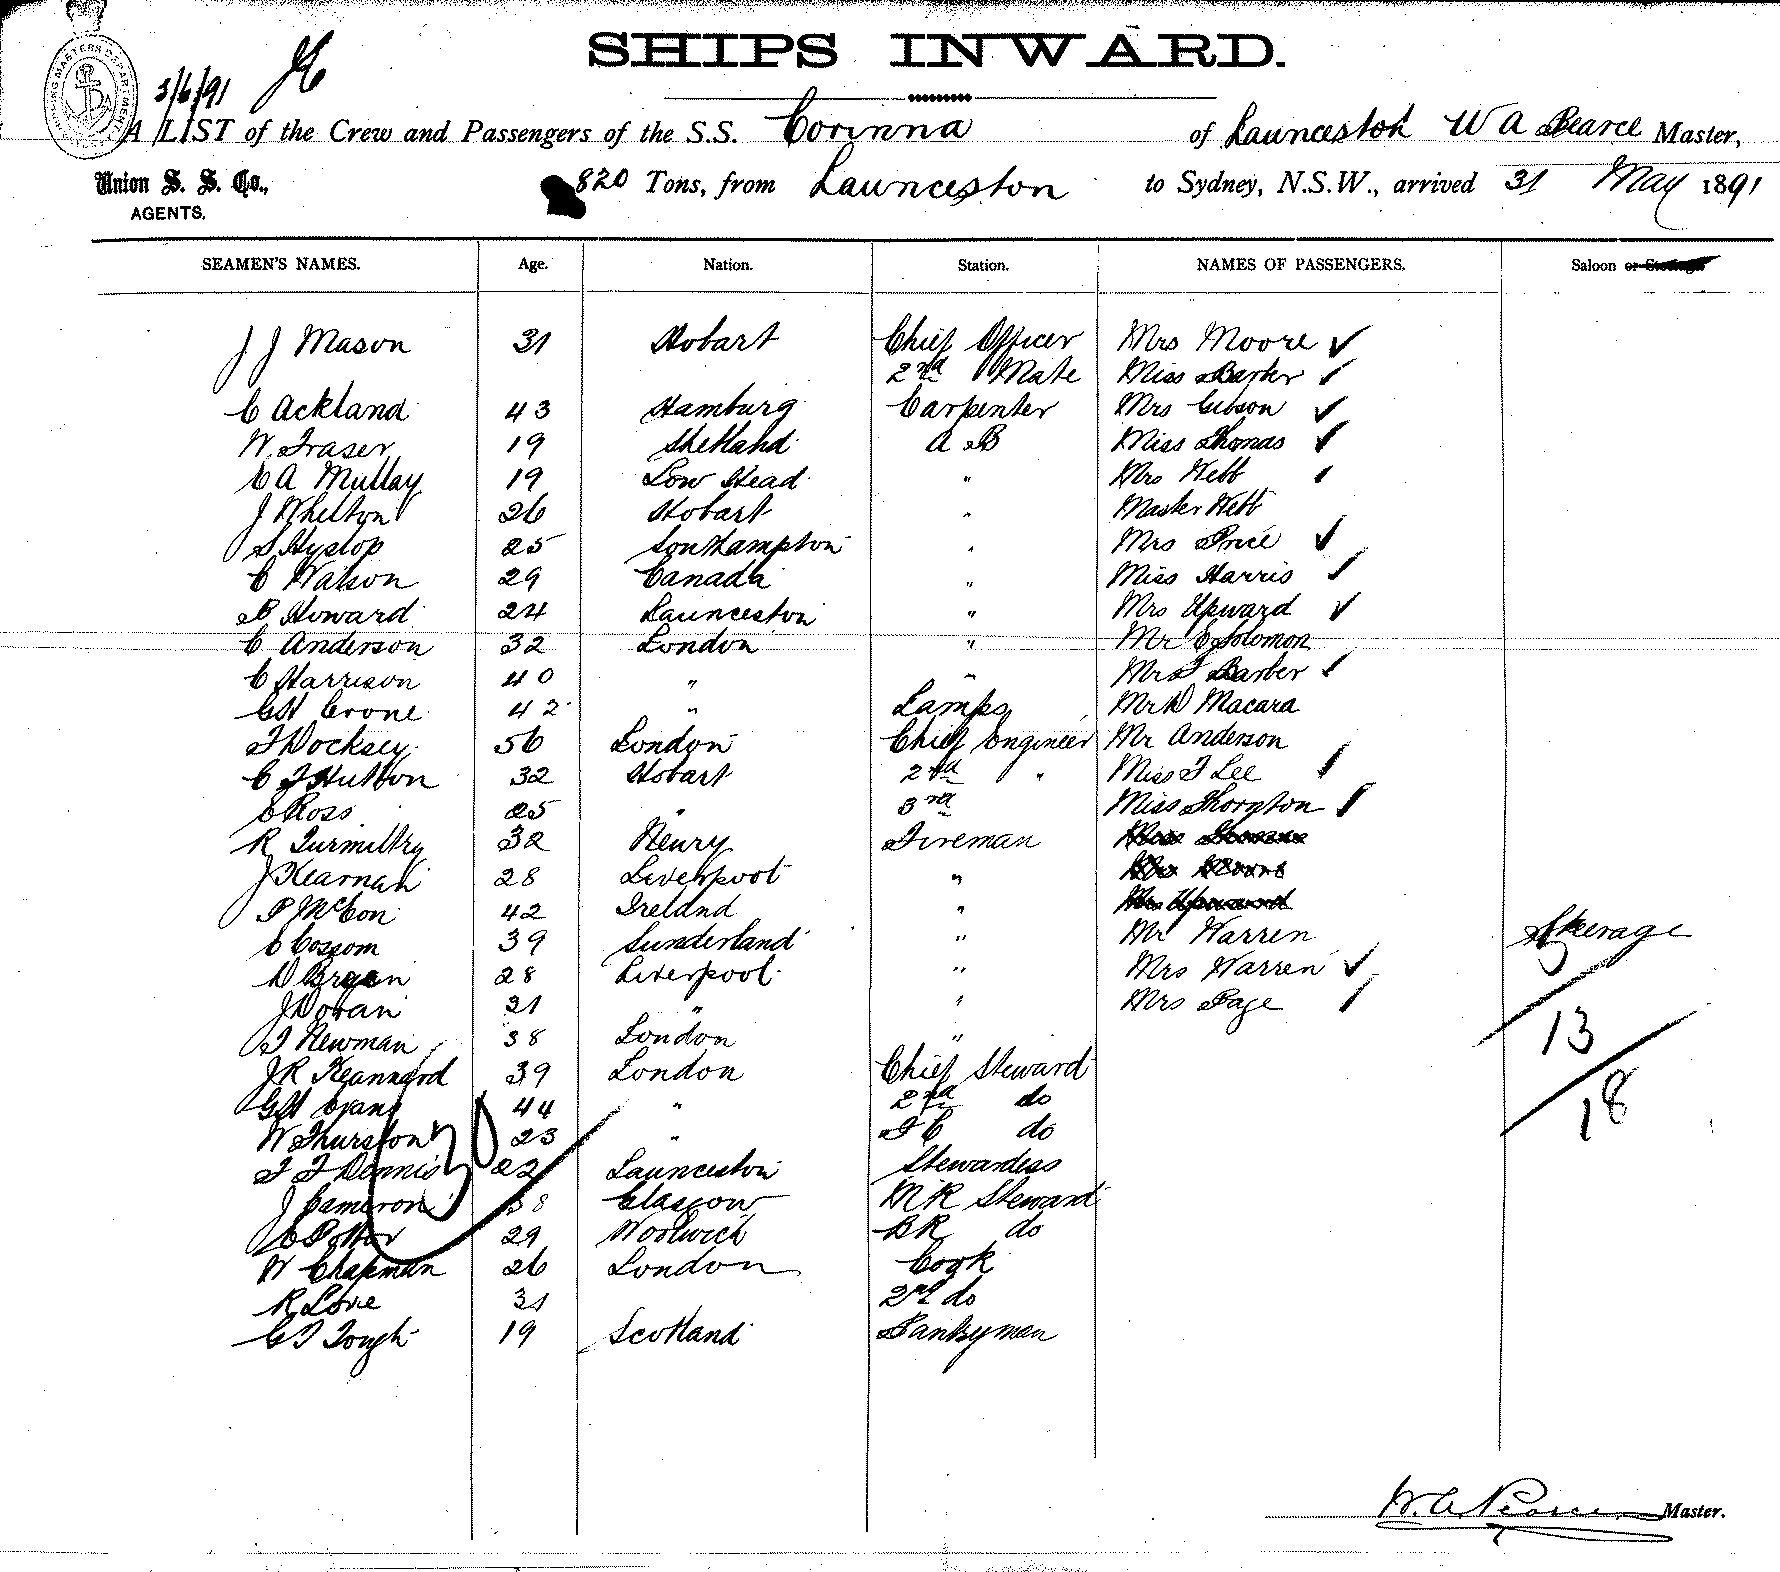 SHIPS INWARD.
3/6/91
A LIST of the Crew and Passengers of the S.S. Corinna of Launceston W A Pearce Master,
Union S. S. Co.,
AGENTS.
820 Tons, from Launceston to Sydney, N.S.W., arrived 31 May 1891
SEAMEN'S NAMES. Age. Nation. Station. NAMES OF PASSENGERS. Saloon
J J Mason 31 Hobart Chief Officer Mrs Moore ✓
2nd Mate Miss Barker ✓
C Ackland 43 Hamburg Carpenter Mrs Gibson ✓
W Fraser 19 Shetland A B Miss Thomas ✓
C A Mullay 19 Low Head " Mrs Webb ✓
J Whelton 26 Hobart " Master Webb
S Hyslop 25 Southampton " Mrs Price ✓
C Watson 29 Canada " Miss Harris ✓
B Howard 24 Launceston " Mrs Upward ✓
C Anderson 32 London " Mr E Solomon
C Harrison 40 " " Mrs F Barber ✓
G H Crone 42 " Lamps Mr D Macara
F Docksey 56 London Chief Engineer Mr Anderson
C F Hutton 32 Hobart 2nd " Miss F Lee ✓
C Ross 25 " 3rd Miss Thorpton ✓
R Turmiltry 32 Newry Fireman
J Kearnan 28 Liverpool "
P McCon 42 Ireland "
C Cossom 39 Sunderland " Mr Warren Steerage
D Bryan 28 Liverpool " Mrs Warren ✓
J Doran 21 " " Mrs Page ✓
F Newman 38 London " 13
J R Keannard 39 London Chief Steward
G H Evans 44 " 2nd do 18
W Thurston 23 " F C do
F F Dennis 22 Launceston Stewardess
J Cameron 38 Glasgow M R Steward
C Potter 29 Woolwich B R do
W Chapman 26 London Cook
R Love 31 2nd do
G F Tough 19 Scotland Pantryman
W. A. Pearce Master.